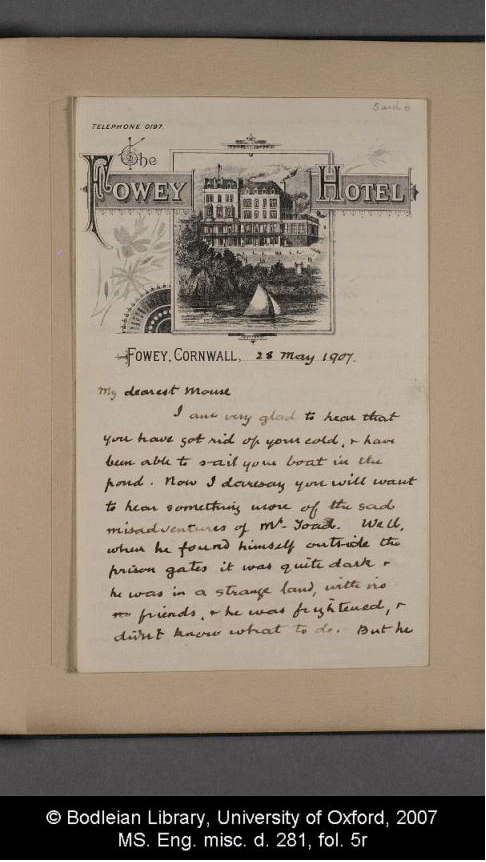 5 and 6
TELEPHONE 0197.
The
FOWEY HOTEL
FOWEY, CORNWALL, 28 May 1907.
My dearest Mouse
I am very glad to hear that
you have got rid of your cold, & have
been able to sail your boat in the
pond. Now I daresay you will want
to hear something more of the sad
misadventures of Mr. Toad. Well,
when he found himself outside the
prison gates it was quite dark &
he was in a strange land, with no
no friends, & he was frightened, &
didn't know what to do. But he
© Bodleian Library, University of Oxford, 2007
MS. Eng. misc. d. 281, fol. 5r